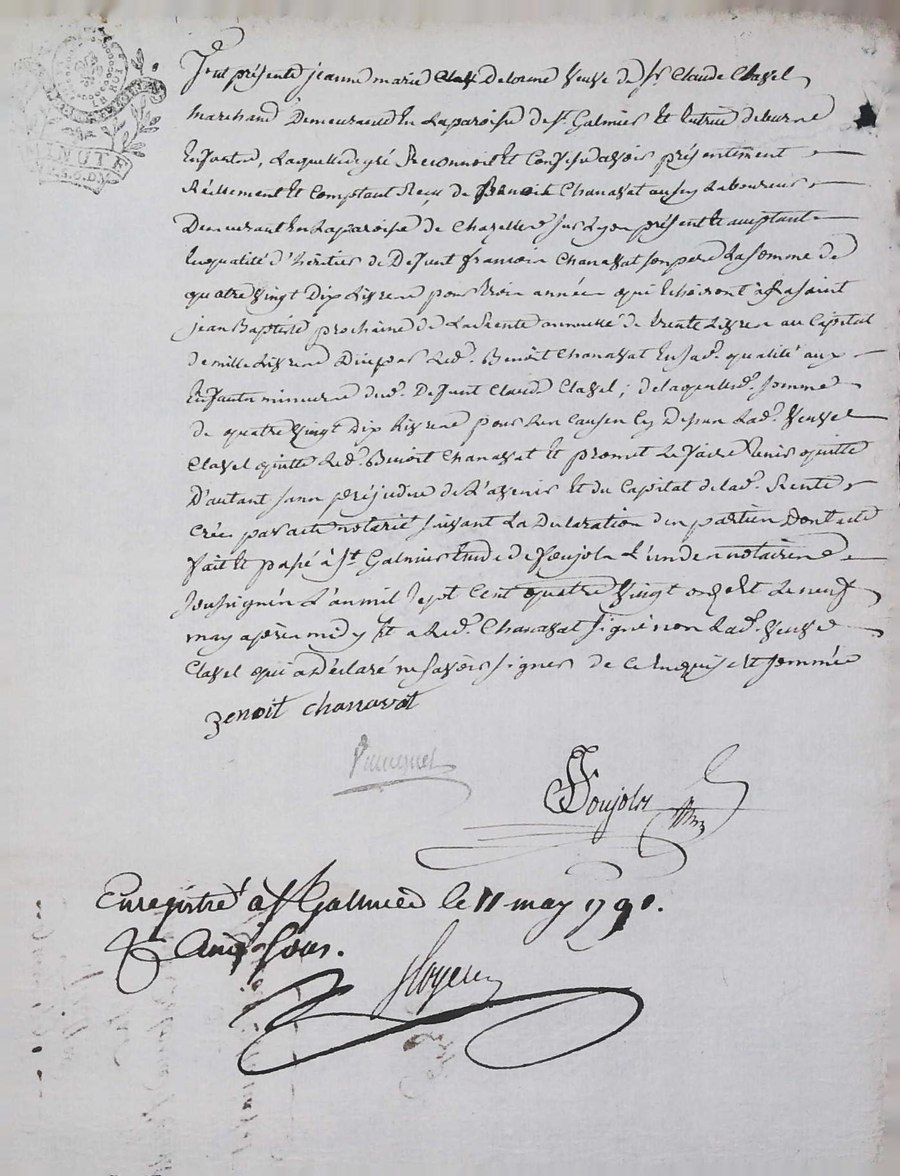 MINUTE
fut présente jeanne marie Delorme veuve de Sr. Claude Clavel
marchand Demeurant En La paroisse de St. Galmier Et tutrice de leurs
Enfants, Laquelle de gré Reconnoit Et Confesse avoir présentement
Réellement Et Comptant Reçu de Benoit Chanavat aussy Laboureur
Demeurant En La paroisse de Chazelles sur Lyon présent Et acceptant
En qualité d'héritier de Defunt francois Chanavat son pere La Somme de
quatre vingt Dix Livres pour trois années qui Echeront à La Saint
jean Baptiste prochaine de La Rente annuelle de trente Livres au Capital
de mille Livres Düe par Led. Benoit Chanavat En sad. qualité aux
Enfants mineurs dud. Defunt Claude Clavel; de laquelle d. somme
de quatre vingt Dix Livres pour Les Causes Cy Dessus Lad. veuve
Clavel quitte Led. Benoit Chanavat Et promet Le faire tenir quitte
D'autant sans préjudice de L'avenir Et du Capital de lad. Rente
Créée par acte notarié suivant La Declaration des parties Dont acte
fait Et passé à St. Galmier Etude de Poujols L'un des notaires
soussignés L'an mil sept Cent quatre vingt onze Et Le neuf
may après midy Et a Led. Chanavat signé non Lad. veuve
Clavel qui a Déclaré ne savoir signer de Ce Enquise Et sommée
Benoit chanavat
Poujols
Enregistré a St Galmier le 11 may 1791.